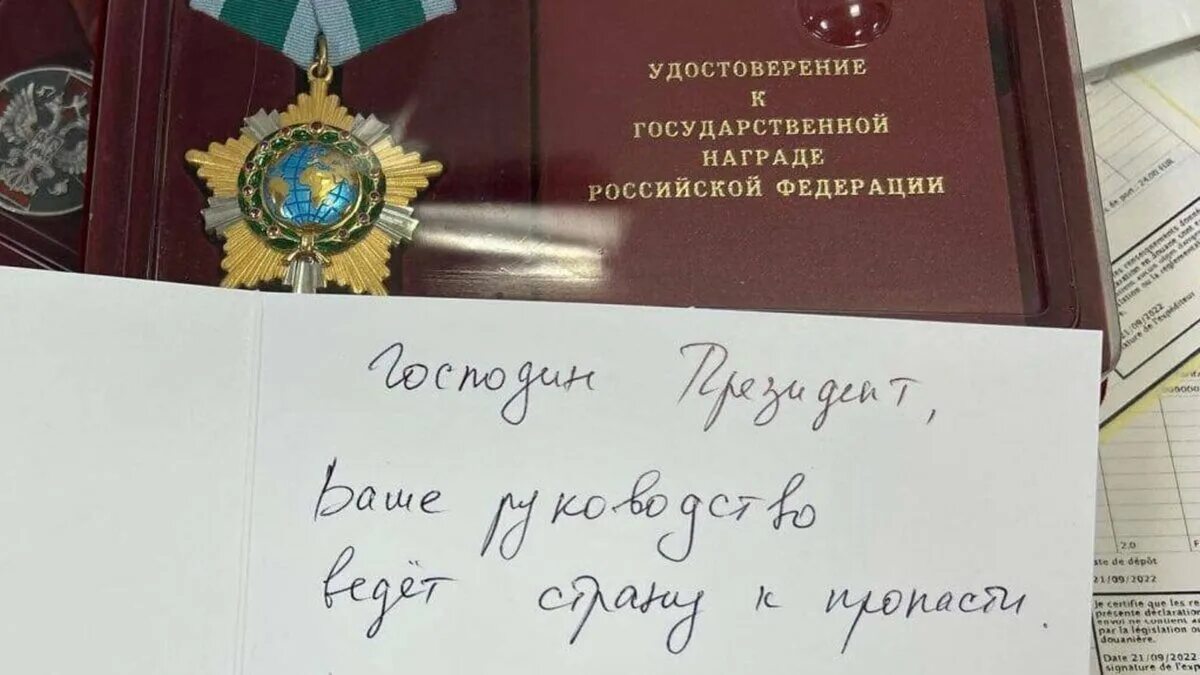 УДОСТОВЕРЕНИЕ
К
ГОСУДАРСТВЕННОЙ
НАГРАДЕ
РОССИЙСКОЙ ФЕДЕРАЦИИ
Господин Президент,
Ваше руководство
ведёт страну к пропасти.
de port.: 24,00 EUR
21/09/2022
2.0
de dépôt
21/09/2022
Je certifie que les
présente déclaration
par la législation
douanière.
Date 21/09/2022
signature de